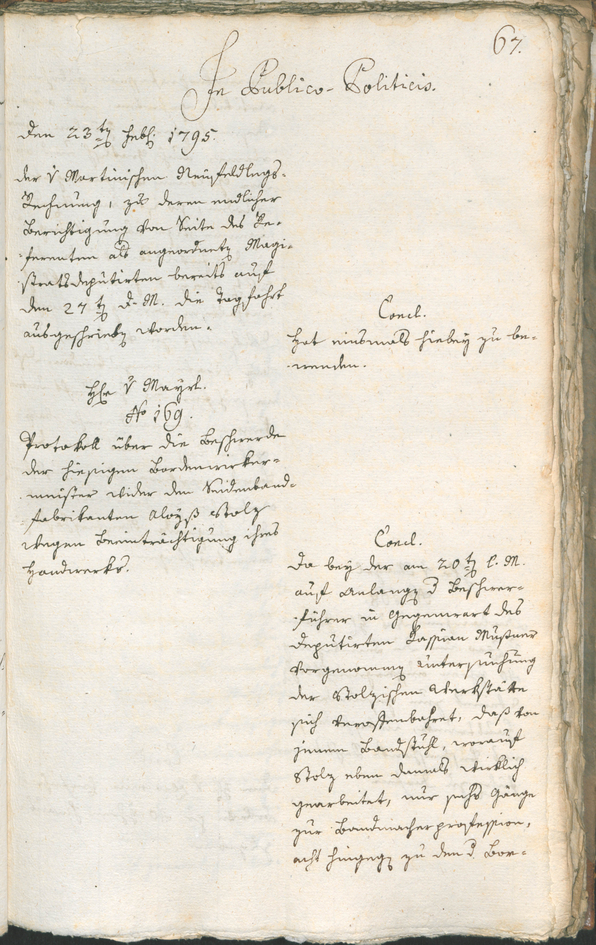 67.
In Publico-Politicis.
Den 23ten Febr. 1795.
der v Martinischen Neufeldlngs-
Rechnung, zu deren endlicher
Berichtigung von Seite des Re-
ferenten als angeordneten Magi-
stratsdeputirten bereits auf
den 27ten d. M. die Tagfahrt
ausgeschrieben worden.
Concl.
Hat einsmals hiebey zu be-
wenden.
Hr v Mayrl.
No 169.
Protokoll über die Beschwerde
der hiesigen Bordenwirker-
meister wider den Seidenband-
fabrikanten Aloyß Stolz
wegen Beeinträchtigung ihres
Handwerks.
Concl.
Da bey der am 20ten l. M.
auf Anlangen d Beschwer-
führer in Gegenwart des
Deputirten Kassian Mußner
vorgenommenen Untersuchung
der Stolzischen Werkstätte
sich veroffenbahret, daß von
jenem Bandstuhl, worauf
Stolz eben damals wirklich
gearbeitet, nur sechs Gänge
zur Bandmacherprofession,
acht hingegen zu den d Bor-